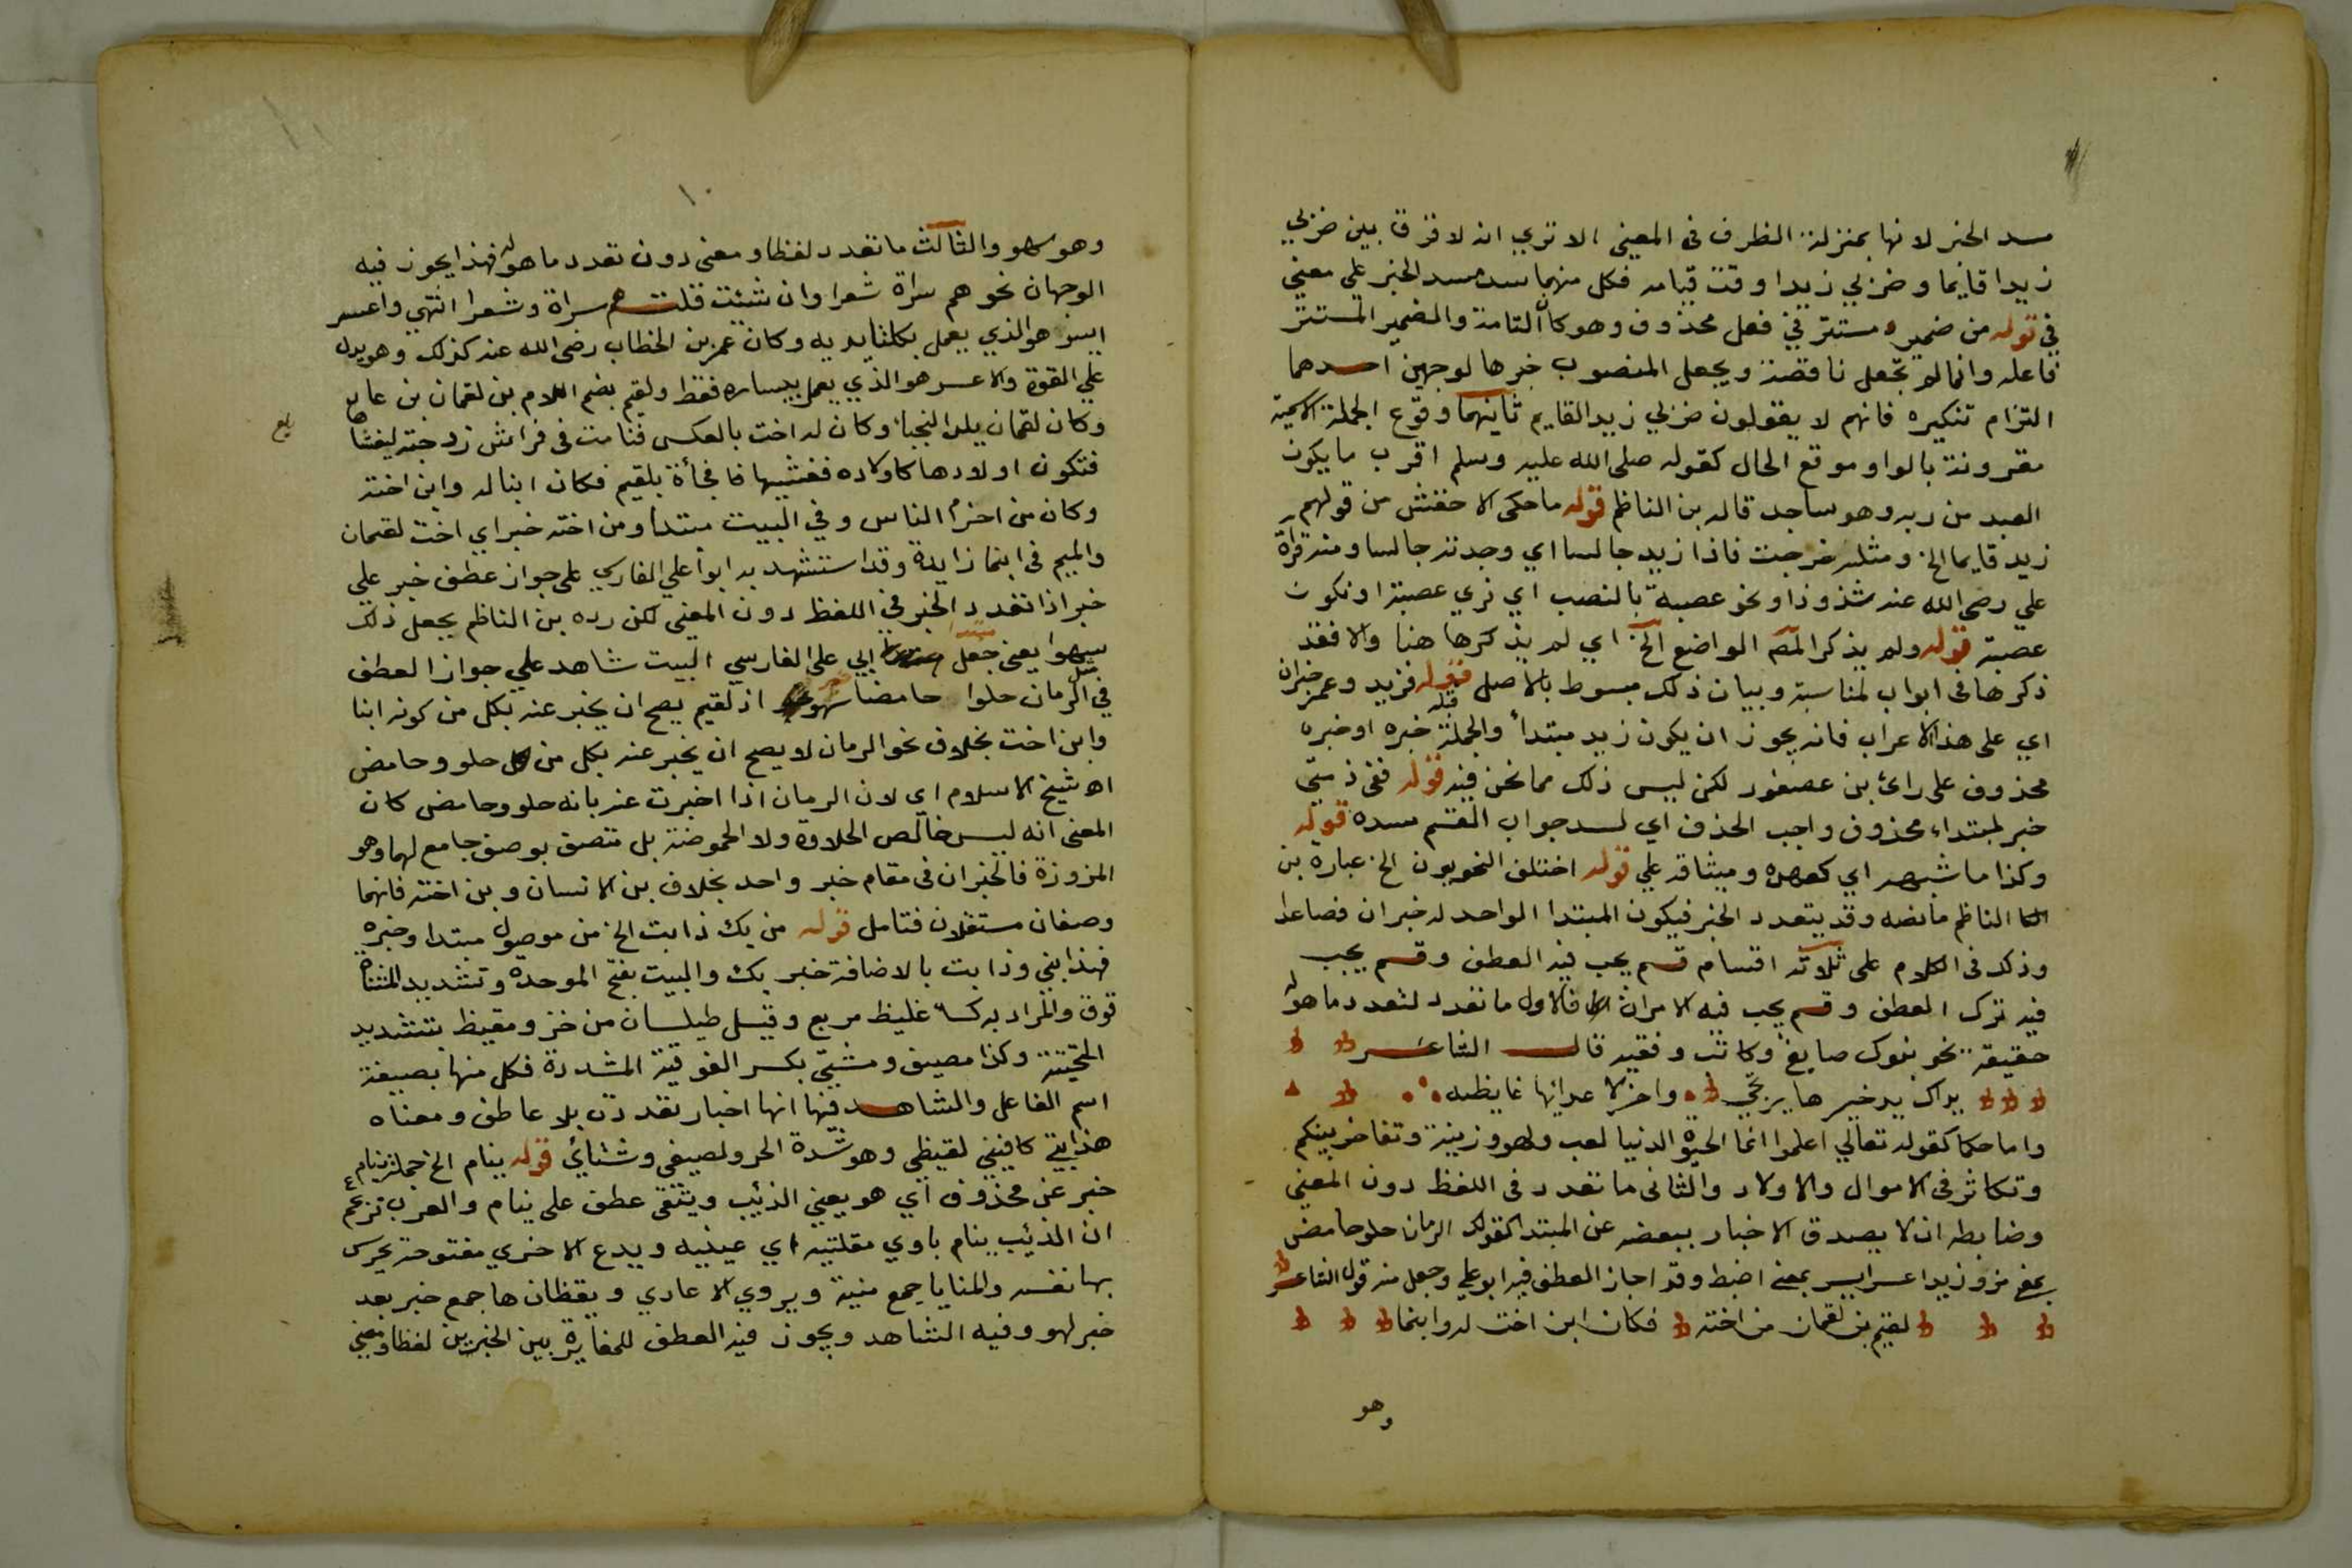 مسد الخبر لانها بمنزلة الظرف فى المعنى الا تري انه لا فرق بين ضربي
زيدا قايما وضربي زيدا وقت قيامه فكل منهما سد مسد الخبر علي معني
في قوله من ضمير مستتر في فعل محذوف وهو كان التامة والضمير المستتر
فاعله وانما لم تجعل ناقصة ويجعل المنصوب خبرها لوجهين احدهما
التزام تنكيره فانهم لا يقولون ضربي زيد القايم ثانيهما وقوع الجملة الاسمية
مقرونة بالواو موقع الحال كقوله صلى الله عليه وسلم اقرب ما يكون
العبد من ربه وهو ساجد قاله بن الناظم قوله ما حكى الاخفش من قولهم
زيد قايما الخ ومثله خرجت فاذا زيد جالسا اي وجدته جالسا ومنه قراة
علي رضى الله عنه شذوذا ونحو عصبة بالنصب اي نري عصبة او نكون
عصبة قوله ولم يذكر المص المواضع الخ اي لم يذكرها هنا والا فقد
ذكرها فى ابواب لمناسبة وبيان ذلك مبسوط بالاصل قوله فزيد وعمر خبران
اي على هذا الاعراب فانه يجوز ان يكون زيد مبتدأ والجملة قبله خبره او خبره
محذوف على رائ بن عصفور لكن ليس ذلك مما نحن فيه قوله ففى ذمتي
خبر لمبتداء محذوف واجب الحذف اي لسد جواب القسم مسده قوله
وكذا ما شبهه اي كعهد وميثاق علي قوله اختلف النحويون الخ عبارة بن
الناظم ما نصه وقد يتعدد الخبر فيكون المبتدا الواحد له خبران فصاعدا
وذلك فى الكلام على ثلاثة اقسام قسم يجب فيه العطف وقسم يجب
فيه ترك العطف وقسم يجب فيه الامران فالاول ما تعدد لتعدد ما هو له
حقيقة نحو بنوك صايغ وكاتب وفقيه قال الشاعر
يداك يد خيرها يرتجي واخرى لاعدائها غايظه
واما حكما كقوله تعالي اعلموا انما الحيوة الدنيا لعب ولهو وزينة وتفاخر بينكم
وتكاثر فى الاموال والاولاد والثانى ما تعدد فى اللفظ دون المعني
وضابطه ان لا يصدق الاخبار ببعضه عن المبتدا كقولك الرمان حلو حامض
بمعنى مز وزيد اعسر ايسر بمعنى اضبط وقد اجاز العطف فيه ابو علي وجعل منه قول الشاعر
لقيم بن لقمان من اخته فكان ابن اخت له وابنما
وهو
١٠
وهو سهو والثالث ما تعدد لفظا ومعنى دون تعدد ما هو له فهذا يجوز فيه
الوجهان نحو هم سراة شعرا وان شئت قلت هم سراة وشعرا انتهي واعسر
ايسر هو الذي يعمل بكلتا يديه وكان عمر بن الخطاب رضى الله عنه كذلك وهو يدل
علي القوة والاعسر هو الذي يعمل بيساره فقط ولقيم بضم اللام بن لقمان بن عاد
وكان لقمان يلد النجبا وكان له اخت بالعكس فنامت فى فراش زوجته ليغشاها
فتكون اولادها كاولاده فغشيها فافجأة بلقيم فكان ابنا له وابن اخته
وكان من احزم الناس وفي البيت مبتدأ ومن اخته خبر اي اخت لقمان
والميم فى ابنما زايدة وقد استشهد به ابوا علي الفارسي على جواز عطف خبر علي
خبر اذا تعدد الخبر في اللفظ دون المعنى لكن رده بن الناظم بجعل ذلك
سهوا يعنى جعل ابي على الفارسي البيت شاهد علي جواز العطف
في مثل الرمان حلوا حامضا سهو اذ لقيم يصح ان يخبر عنه بكل من كونه ابنا
وابن اخت بخلاف نحو الرمان لا يصح ان يخبر عنه بكل من حلو وحامض
اه شيخ الاسلام اي لان الرمان اذا اخبرت عنه بانه حلو وحامض كان
المعنى انه ليس خالص الحلاوة ولا الحموضة بل متصف بوصف جامع لهما وهو
المزوزة فالخبران فى مقام خبر واحد بخلاف بن الانسان وبن اخته فانهما
وصفان مستقلان فتامل قوله من يك ذا بت الخ من موصول مبتدا وخبره
فهذا بتي وذا بت بالاضافة خبر يك والبيت بفتح الموحدة وتشديد المثناة
فوق والمراد به كساء غليظ مربع وقيل طيلسان من خز ومقيظ بتشديد
التحتية وكذا مصيف ومشتي بكسر الفوقية المشددة فكل منها بصيغة
اسم الفاعل والشاهد فيها انها اخبار تعددت بلا عاطف ومعناه
هذا بتي كافيني لقيظي وهو شدة الحر ولصيفي وشتائي قوله ينام الخ جملة ينام
خبر عن محذوف اي هو يعني الذئب ويتقى عطف على ينام والعرب تزعم
ان الذئب ينام باوي مقلتيه اي عينيه ويدع الاخري مفتوحة يحرس
بها نفسه والمنايا جمع منية ويروي الاعادي ويقظان هاجع خبر بعد
خبر لهو وفيه الشاهد ويجوز فيه العطف للمغايرة بين الخبرين لفظا ومعني